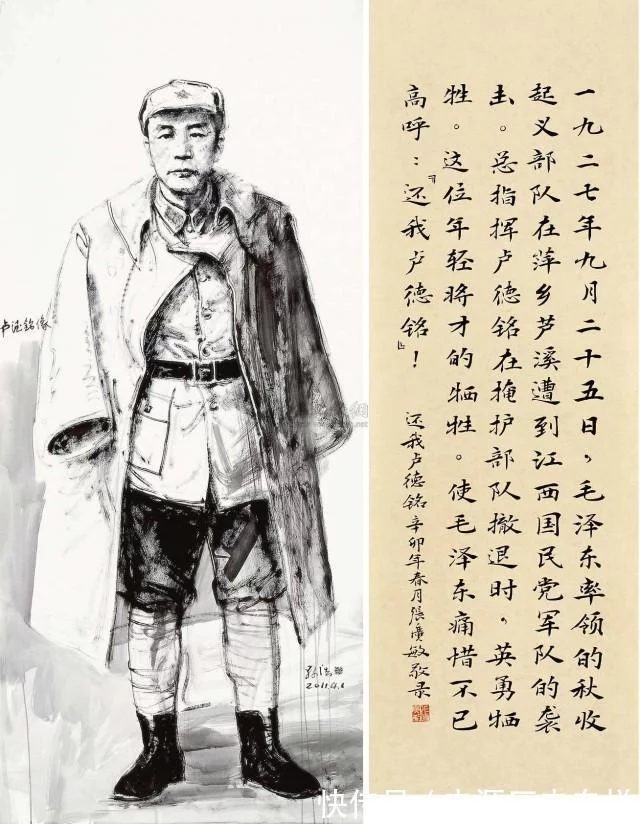 卢德铭像
2011.4.1
一九二七年九月二十五日，毛泽东率领的秋收
起义部队在萍乡芦溪遭到江西国民党军队的袭
击。总指挥卢德铭在掩护部队撤退时，英勇牺
牲。这位年轻将才的牺牲。使毛泽东痛惜不已
高呼：『还我卢德铭』！
还我卢德铭 辛卯年春月張 敏敬录
快传号